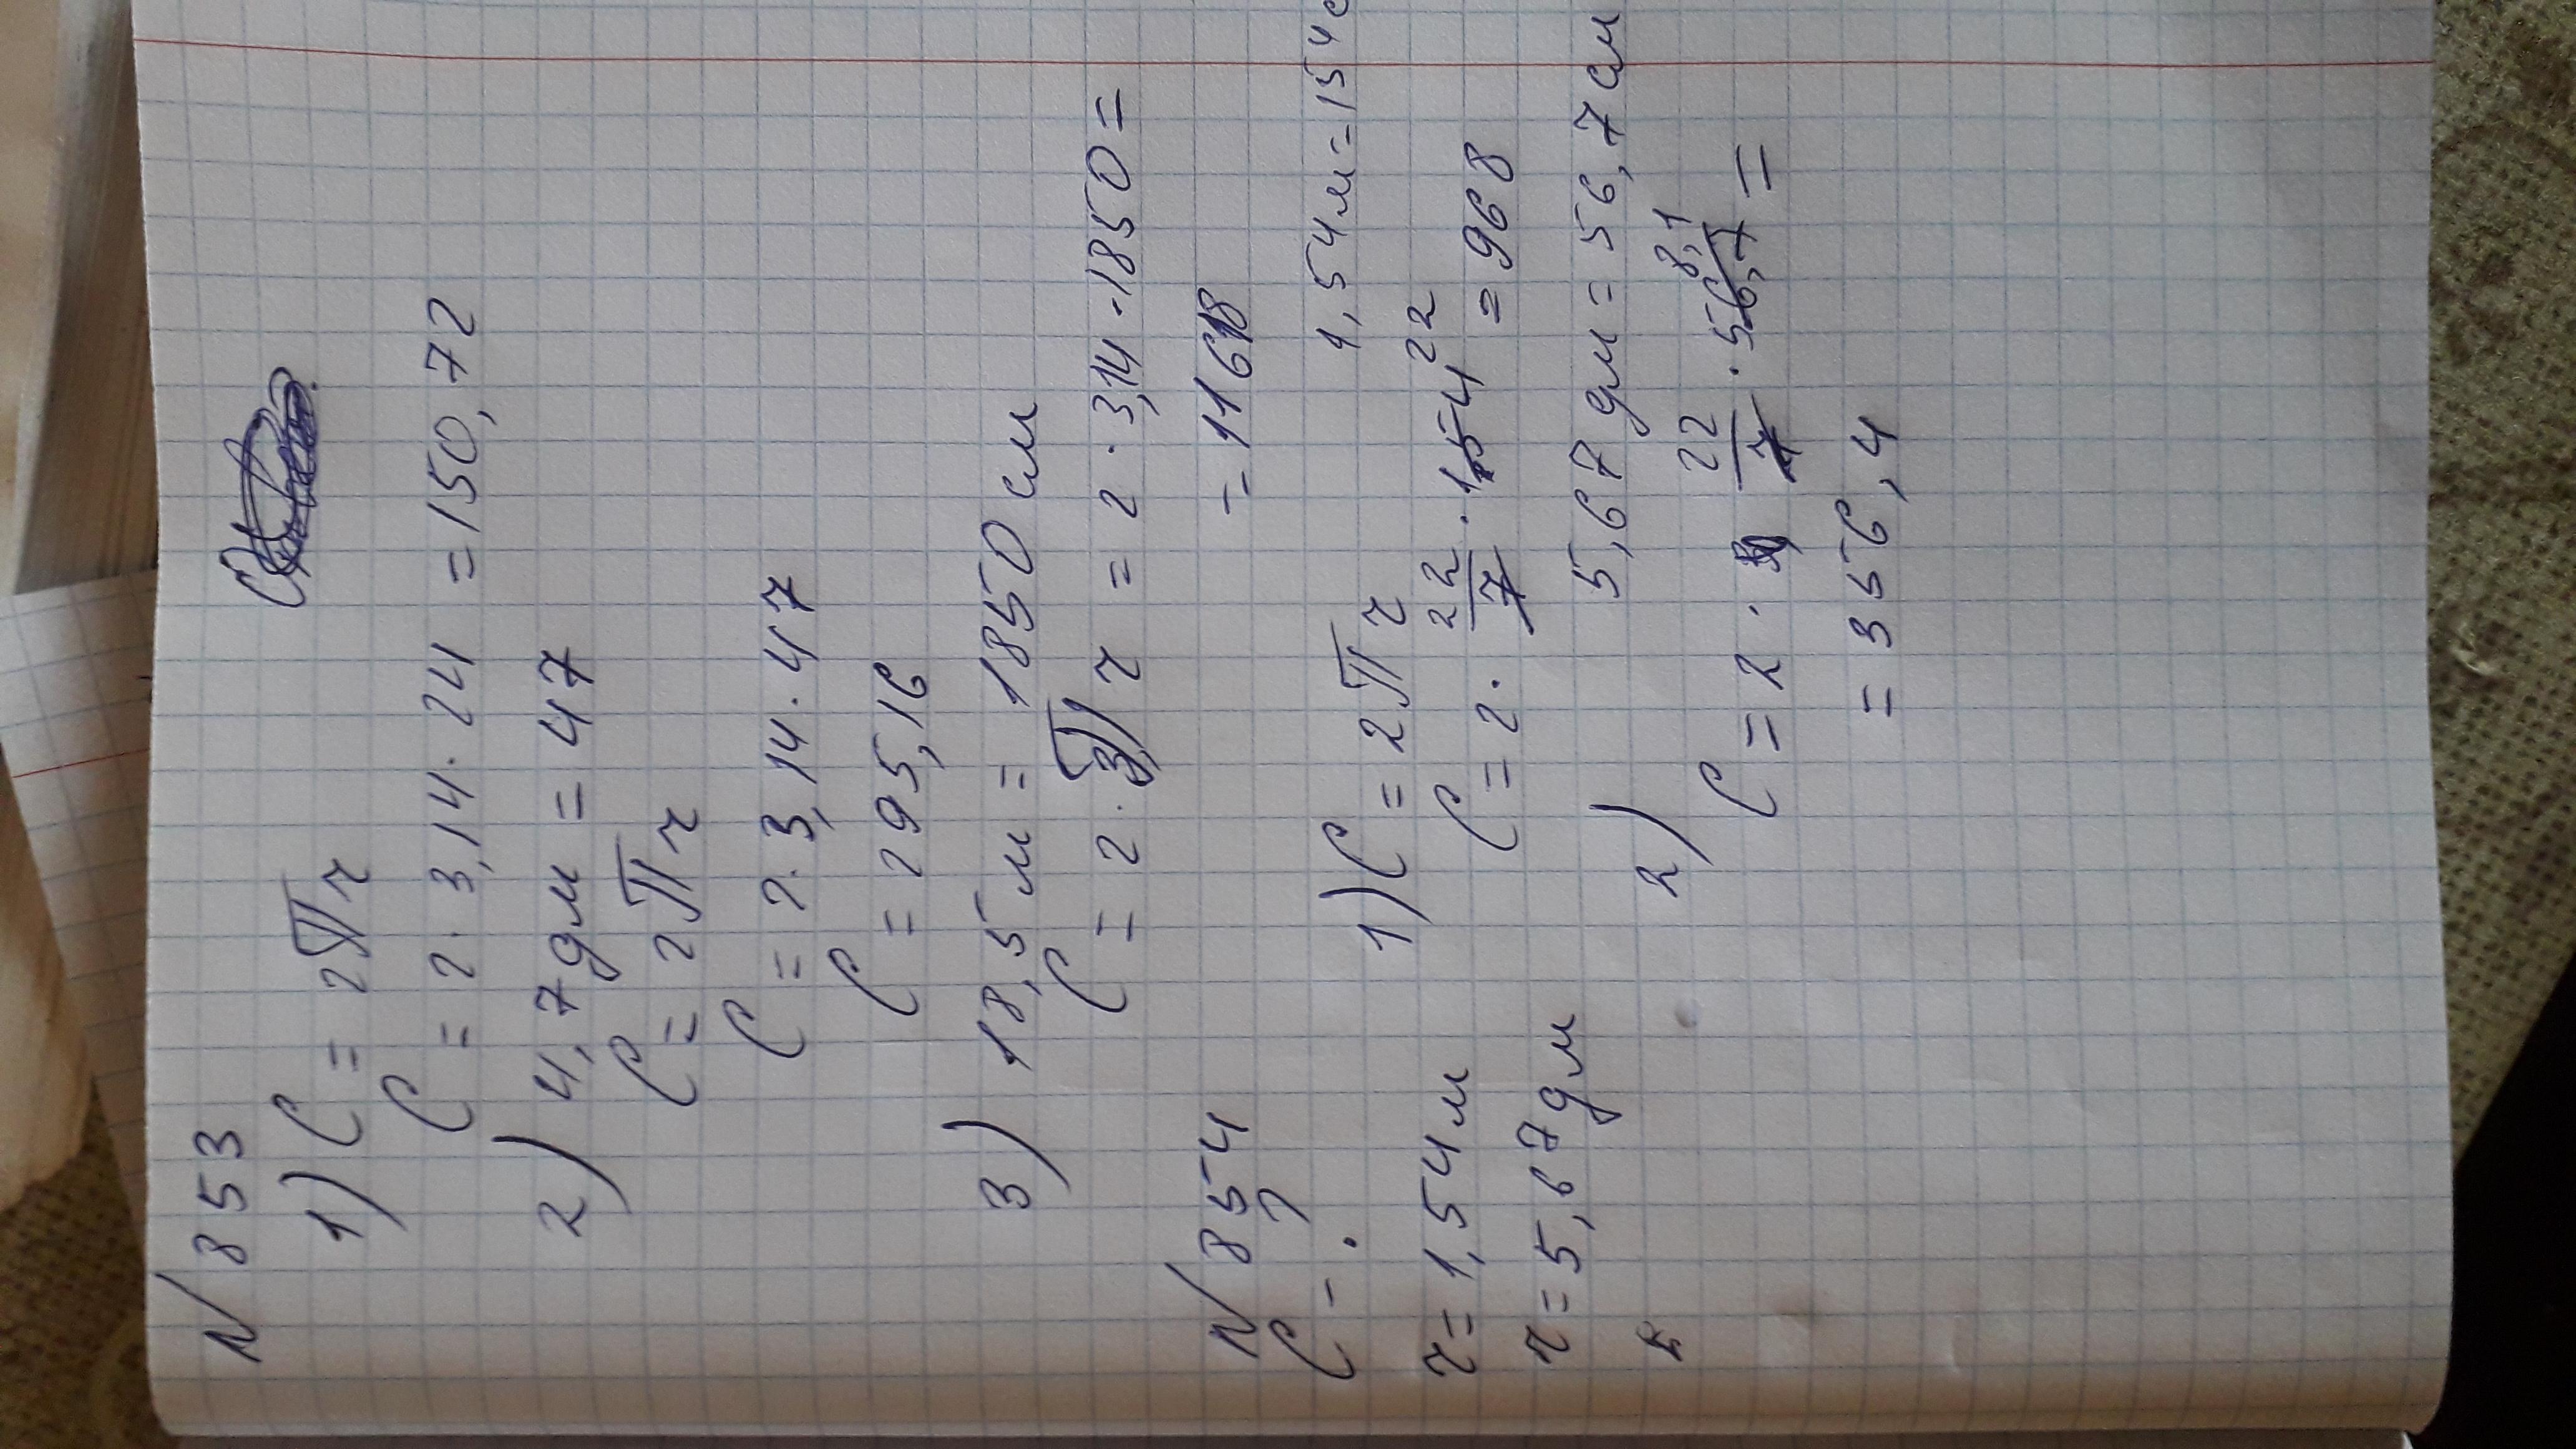 N 853
1) C = 2πr
C = 2 · 3,14 · 24 = 150,72
2) 4,7 дм = 47
C = 2πr
C = 2 · 3,14 · 47
C = 295,16
3) 18,5 м = 1850 см
C = 2 · πr = 2 · 3,14 · 1850 =
= 11618
N 854
C - ?
r = 1,54 м
r = 5,67 дм
1,54 м = 154 с
1) C = 2πr
C = 2 · 22/7 · 154 22 = 968
5,67 дм = 56,7 см
2)
C = 2 · 22/7 · 56,7 8,1 =
= 356,4